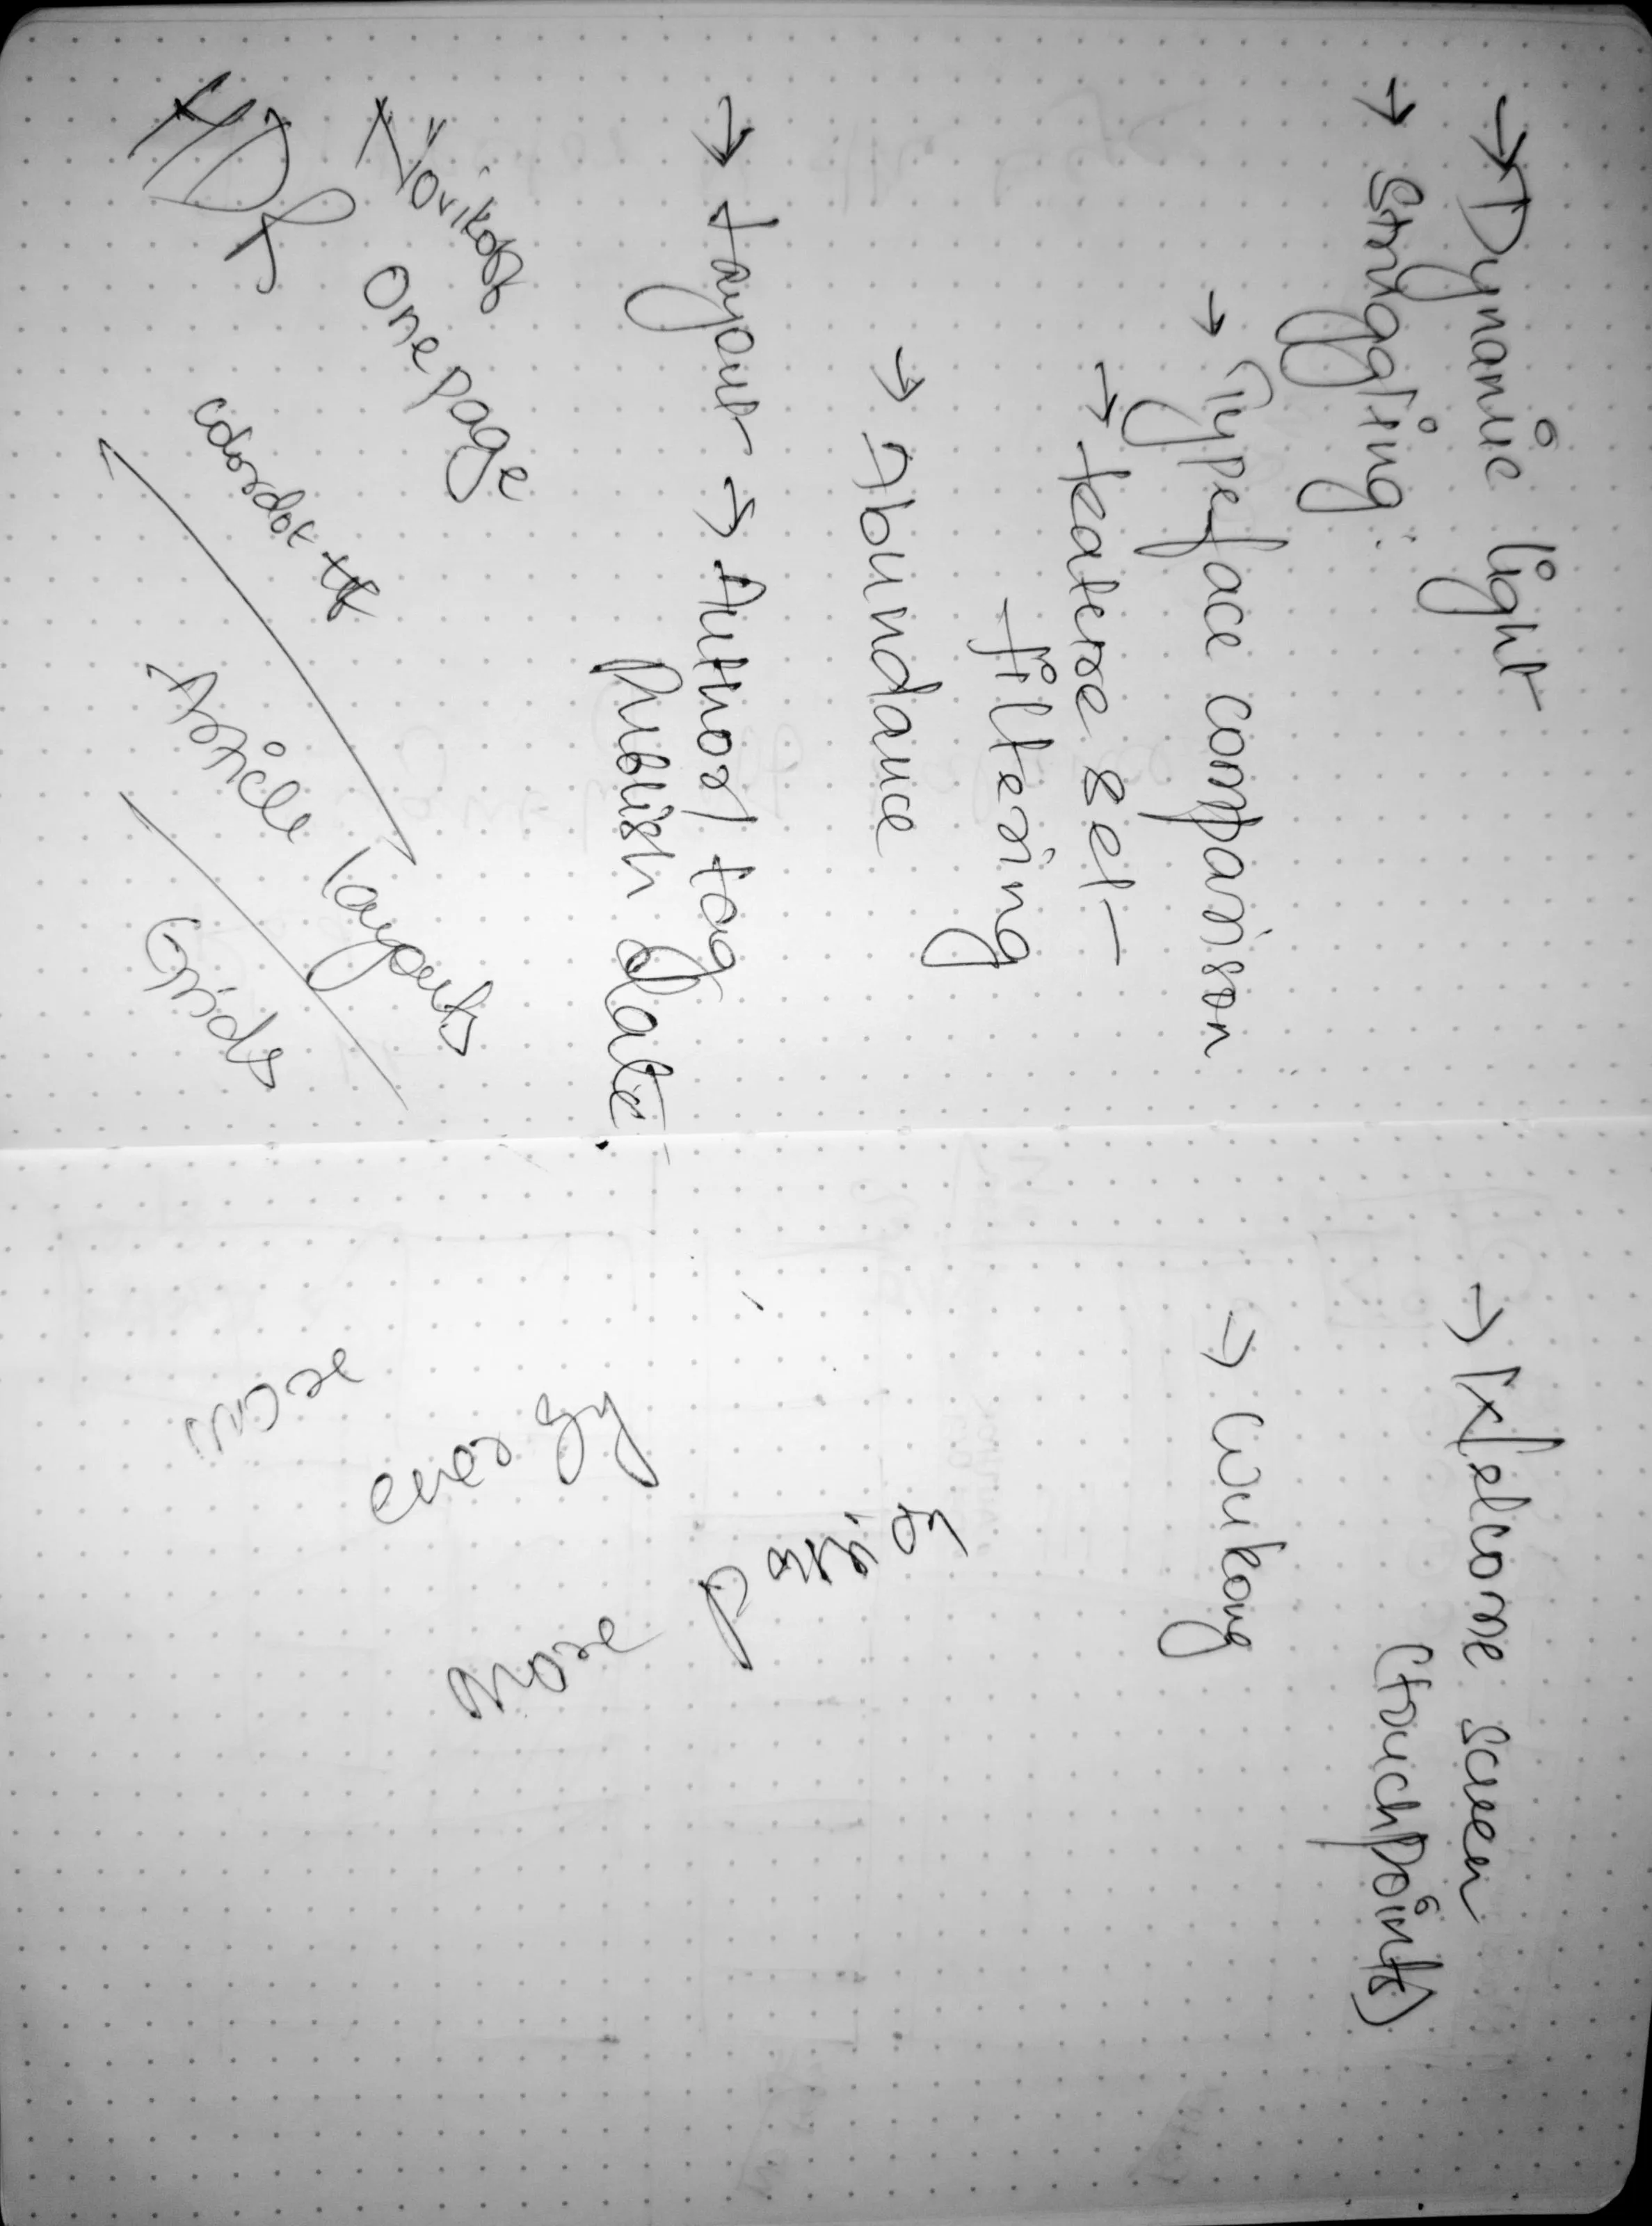 → Dynamic light
→ Struggling:
→ Typeface comparison
→ feature set -
- filtering
→ Abundance
→ Layout → Author/tag
Publish date.
one page
HDR
Article layouts
Grids
→ Welcome screen
(touchpoints)
→ Wukong
more
energy
More